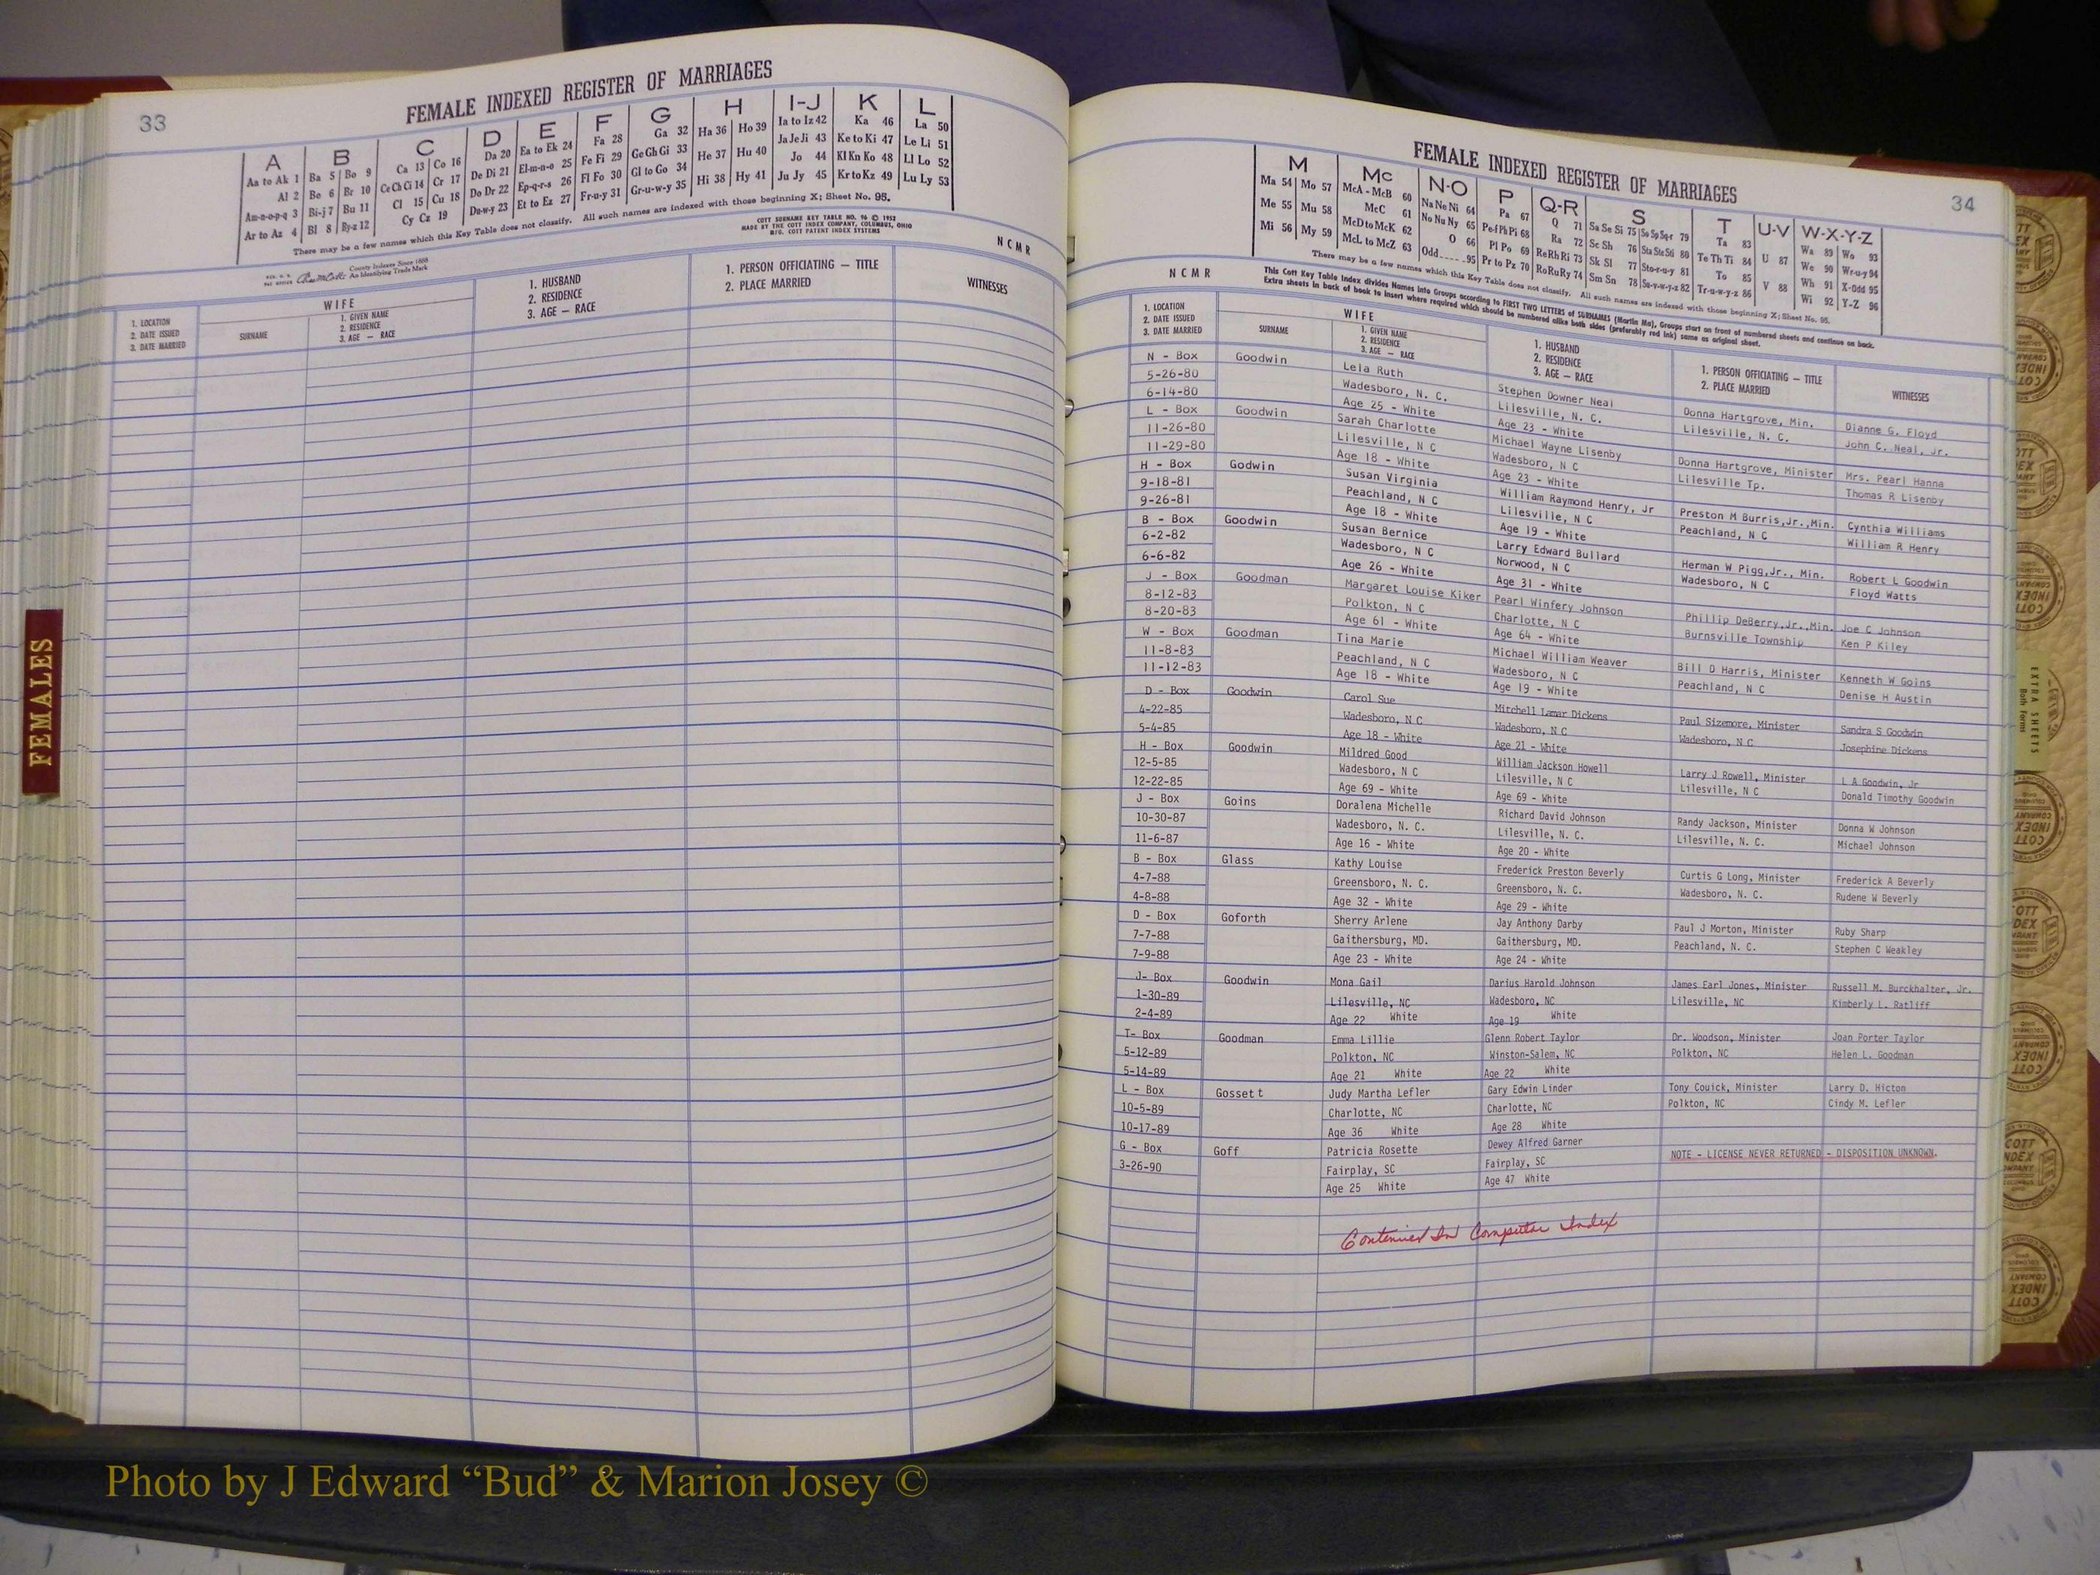 33
FEMALE INDEXED REGISTER OF MARRIAGES
A B C D E F G H I-J K L
Aa to Ak 1 Ba 5 Bo 9 Ca 13 Co 16 Da 20 Ea to Ek 24 Fa 28 Ga 32 Ha 36 Ho 39 Ia to Iz 42 Ka 46 La 50
Al 2 Be 6 Br 10 Ce Ch Ci 14 Cr 17 De Di 21 El-m-n-o 25 Fe Fi 29 Ge Gh Gi 33 He 37 Hu 40 Ja Je Ji 43 Ke to Ki 47 Le Li 51
Am-n-o-p-q 3 Bi-j 7 Bu 11 Cl 15 Cu 18 Do Dr 22 Ep-q-r-s 26 Fl Fo 30 Gl to Go 34 Hi 38 Hy 41 Jo 44 Kl Kn Ko 48 Ll Lo 52
Ar to Az 4 Bl 8 By-z 12 Cy Cz 19 Du-w-y 23 Et to Ez 27 Fr-u-y 31 Gr-u-w-y 35 Ju Jy 45 Kr to Kz 49 Lu Ly 53
There may be a few names which this Key Table does not classify. All such names are indexed with those beginning X; Sheet No. 95.
COTT SURNAME KEY TABLE NO. 96 © 1952
MADE BY THE COTT INDEX COMPANY, COLUMBUS, OHIO
MFG. COTT PATENT INDEX SYSTEMS
County Indexes Since 1888
An Identifying Trade Mark
N C M R
1. LOCATION
2. DATE ISSUED
3. DATE MARRIED
WIFE
SURNAME
1. GIVEN NAME
2. RESIDENCE
3. AGE — RACE
1. HUSBAND
2. RESIDENCE
3. AGE — RACE
1. PERSON OFFICIATING — TITLE
2. PLACE MARRIED
WITNESSES
FEMALES
FEMALE INDEXED REGISTER OF MARRIAGES
34
M Mc N-O P Q-R S T U-V W-X-Y-Z
Ma 54 Mo 57 McA - McB 60 Na Ne Ni 64 Pa 67 Q 71 Sa Se Si 75 So Sp Sq-r 79 Ta 83 U 87 Wa 89 Wo 93
Me 55 Mu 58 McC 61 No Nu Ny 65 Pe-f Ph Pi 68 Ra 72 Sc Sh 76 Sta Ste Sti 80 Te Th Ti 84 V 88 We 90 Wr-u-y 94
Mi 56 My 59 McD to McK 62 O 66 Pl Po 69 Re Rh Ri 73 Sk Sl 77 Sto-r-u-y 81 To 85 Wh 91 X-Odd 95
McL to McZ 63 Odd.....95 Pr to Pz 70 Ro Ru Ry 74 Sm Sn 78 Su-v-w-y-z 82 Tr-u-w-y-z 86 Wi 92 Y-Z 96
There may be a few names which this Key Table does not classify. All such names are indexed with those beginning X; Sheet No. 95.
N C M R
This Cott Key Table Index divides Names into Groups according to FIRST TWO LETTERS of SURNAMES (Martin Ma), Groups start on front of numbered sheets and continue on back.
Extra sheets in back of book to insert where required which should be numbered alike both sides (preferably red ink) same as original sheet.
1. LOCATION
2. DATE ISSUED
3. DATE MARRIED
WIFE
SURNAME
1. GIVEN NAME
2. RESIDENCE
3. AGE — RACE
1. HUSBAND
2. RESIDENCE
3. AGE — RACE
1. PERSON OFFICIATING — TITLE
2. PLACE MARRIED
WITNESSES
N - Box Goodwin Lela Ruth Stephen Downer Neal Donna Hartgrove, Min. Dianne G. Floyd
5-26-80 Wadesboro, N. C. Lilesville, N. C. Lilesville, N. C. John C. Neal, Jr.
6-14-80 Age 25 - White Age 23 - White
L - Box Goodwin Sarah Charlotte Michael Wayne Lisenby Donna Hartgrove, Minister Mrs. Pearl Hanna
11-26-80 Lilesville, N C Wadesboro, N C Lilesville Tp. Thomas R Lisenby
11-29-80 Age 18 - White Age 23 - White
H - Box Godwin Susan Virginia William Raymond Henry, Jr Preston M Burris,Jr.,Min. Cynthia Williams
9-18-81 Peachland, N C Lilesville, N C Peachland, N C William R Henry
9-26-81 Age 18 - White Age 19 - White
B - Box Goodwin Susan Bernice Larry Edward Bullard Herman W Pigg,Jr., Min. Robert L Goodwin
6-2-82 Wadesboro, N C Norwood, N C Wadesboro, N C Floyd Watts
6-6-82 Age 26 - White Age 31 - White
J - Box Goodman Margaret Louise Kiker Pearl Winfery Johnson Phillip DeBerry,Jr.,Min. Joe C Johnson
8-12-83 Polkton, N C Charlotte, N C Burnsville Township Ken P Kiley
8-20-83 Age 61 - White Age 64 - White
W - Box Goodman Tina Marie Michael William Weaver Bill D Harris, Minister Kenneth W Goins
11-8-83 Peachland, N C Wadesboro, N C Peachland, N C Denise H Austin
11-12-83 Age 18 - White Age 19 - White
D - Box Goodwin Carol Sue Mitchell Lamar Dickens Paul Sizemore, Minister Sandra S Goodwin
4-22-85 Wadesboro, N C Wadesboro, N C Wadesboro, N C Josephine Dickens
5-4-85 Age 18 - White Age 21 - White
H - Box Goodwin Mildred Good William Jackson Howell Larry J Rowell, Minister L A Goodwin, Jr
12-5-85 Wadesboro, N C Lilesville, N C Lilesville, N C Donald Timothy Goodwin
12-22-85 Age 69 - White Age 69 - White
J - Box Goins Doralena Michelle Richard David Johnson Randy Jackson, Minister Donna W Johnson
10-30-87 Wadesboro, N. C. Lilesville, N. C. Lilesville, N. C. Michael Johnson
11-6-87 Age 16 - White Age 20 - White
B - Box Glass Kathy Louise Frederick Preston Beverly Curtis G Long, Minister Frederick A Beverly
4-7-88 Greensboro, N. C. Greensboro, N. C. Wadesboro, N. C. Rudene W Beverly
4-8-88 Age 32 - White Age 29 - White
D - Box Goforth Sherry Arlene Jay Anthony Darby Paul J Morton, Minister Ruby Sharp
7-7-88 Gaithersburg, MD. Gaithersburg, MD. Peachland, N. C. Stephen C Weakley
7-9-88 Age 23 - White Age 24 - White
J- Box Goodwin Mona Gail Darius Harold Johnson James Earl Jones, Minister Russell M. Burckhalter, Jr.
1-30-89 Lilesville, NC Wadesboro, NC Lilesville, NC Kimberly L. Ratliff
2-4-89 Age 22 White Age 19 White
T- Box Goodman Emma Lillie Glenn Robert Taylor Dr. Woodson, Minister Joan Porter Taylor
5-12-89 Polkton, NC Winston-Salem, NC Polkton, NC Helen L. Goodman
5-14-89 Age 21 White Age 22 White
L - Box Gossett Judy Martha Lefler Gary Edwin Linder Tony Couick, Minister Larry D. Hicton
10-5-89 Charlotte, NC Charlotte, NC Polkton, NC Cindy M. Lefler
10-17-89 Age 36 White Age 28 White
G - Box Goff Patricia Rosette Dewey Alfred Garner NOTE - LICENSE NEVER RETURNED - DISPOSITION UNKNOWN.
3-26-90 Fairplay, SC Fairplay, SC
Age 25 White Age 47 White
Continued In Computer Index
EXTRA SHEETS
Both Forms
Photo by J Edward “Bud” & Marion Josey ©